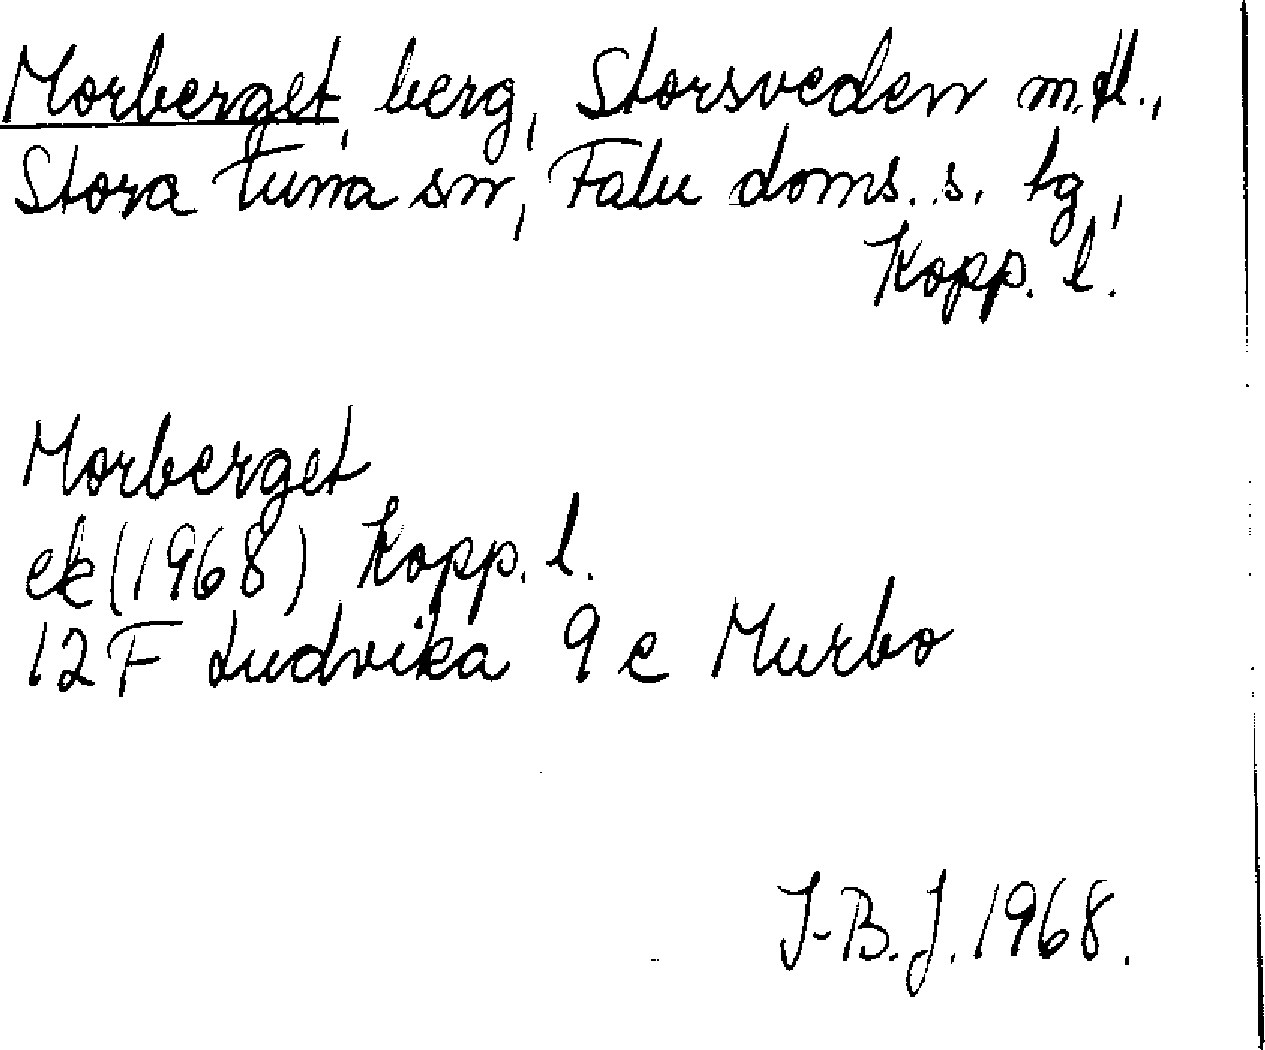 Morberget, berg, Storsveden m.fl.,
Stora Tuna sn, Falu doms. s. tg,
Kopp. l.
Morberget
ek (1968) Kopp. l.
12 F Ludvika 9 e Murbo
I-B. J. 1968.